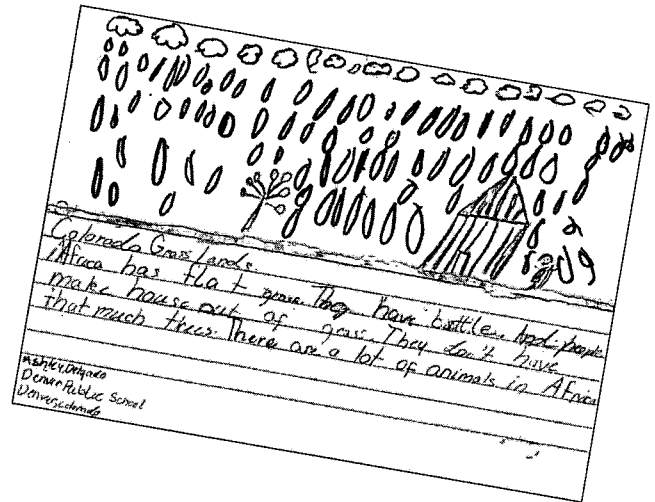 Colorado Grass lands.
Africa has flat grass. They have cattle. And people
make house out of grass. They don't have
that much trees. There are a lot of animals in Africa
Ashley Delgado
Denver Public School
Denver, Colorado